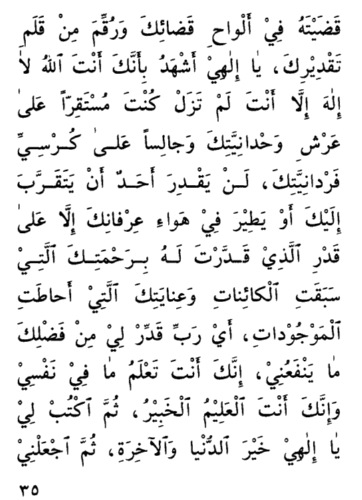 قَضَيْتَهُ فِيْ أَلْواحِ قَضائِكَ وَرُقِّمَ مِنْ قَلَمِ
تَقْدِيْرِكَ، يا إِلٰهِيْ أَشْهَدُ بِأَنَّكَ أَنْتَ ٱللهُ لا
إِلهَ إِلَّا أَنْتَ لَمْ تَزَلْ كُنْتَ مُسْتَقِرّاً عَلىٰ
عَرْشِ وَحْدانِيَّتِكَ وَجالِساً عَلـىٰ كُـرْسِـيِّ
فَرْدانِيَّتِكَ، لَـنْ يَقْـدِرَ أَحَـدٌ أَنْ يَتَقَـرَّبَ
إِلَيْكَ أَوْ يَطِيْرَ فِيْ هَواءِ عِرْفانِكَ إِلَّا عَلىٰ
قَدْرِ ٱلَّذِيْ قَـدَّرْتَ لَـهُ بِـرَحْمَتِـكَ ٱلَّتِـيْ
سَبَقَتِ ٱلْكائِناتِ وَعِنايَتِكَ ٱلَّتِيْ أَحاطَتِ
ٱلْمَوْجُوداتِ، أَيْ رَبِّ قَدِّرْ لِيْ مِنْ فَضْلِكَ
ما يَنْفَعُنِيْ، إِنَّكَ أَنْتَ تَعْلَمُ ما فِيْ نَفْسِيْ
وَإِنَّكَ أَنْتَ ٱلْعَلِيْمُ ٱلْخَبِيْرُ، ثُمَّ ٱكْتُبْ لِيْ
يا إِلٰهِيْ خَيْرَ ٱلدُّنْيا وَٱلآخِرَةِ، ثُمَّ ٱجْعَلْنِيْ
٣٥